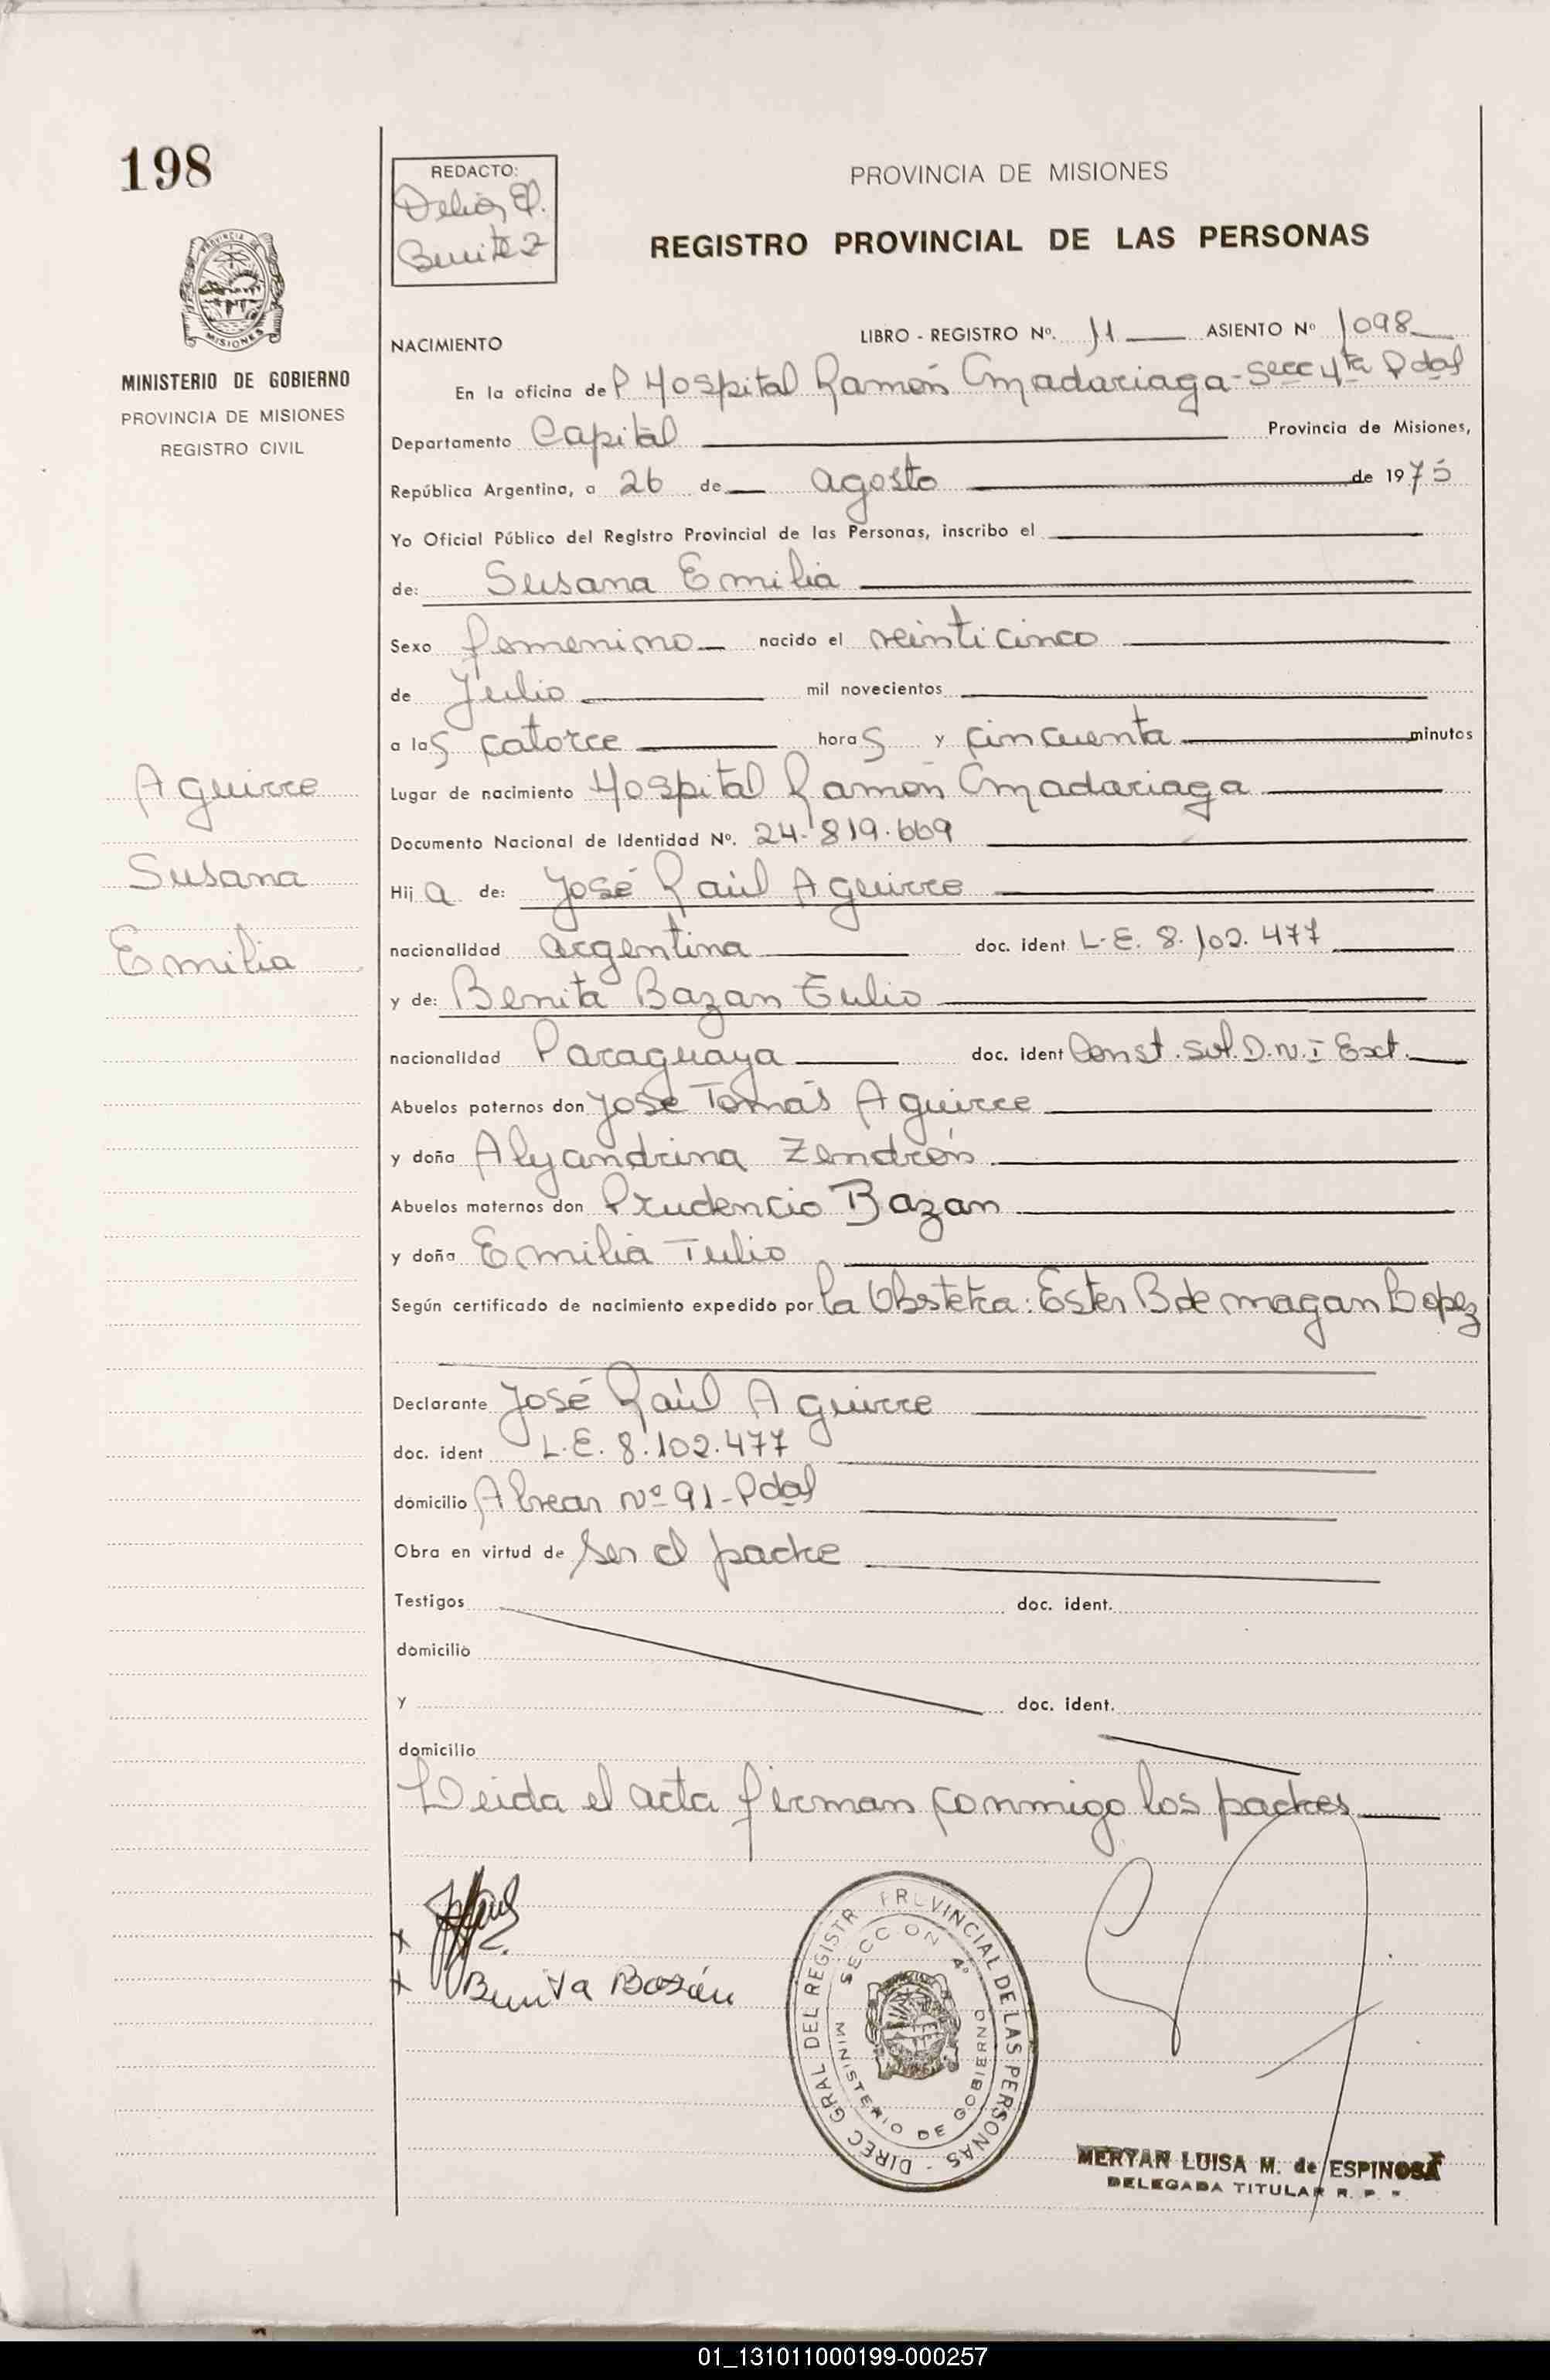 198
REDACTO:
Benitez
PROVINCIA DE MISIONES
REGISTRO PROVINCIAL DE LAS PERSONAS
MINISTERIO DE GOBIERNO
PROVINCIA DE MISIONES
REGISTRO CIVIL
NACIMIENTO
LIBRO - REGISTRO Nº. 11 ASIENTO Nº 1098
En la oficina del Hospital Ramón Madariaga - Secc 4ta Pdas
Departamento Capital Provincia de Misiones,
República Argentina, a 26 de agosto de 1975
Yo Oficial Público del Registro Provincial de las Personas, inscribo el
de: Susana Emilia
Sexo femenino nacido el veinticinco
de Julio mil novecientos
a las catorce horas y cincuenta minutos
Lugar de nacimiento Hospital Ramón Madariaga
Documento Nacional de Identidad Nº. 24.819.669
Aguirre
Susana
Emilia
Hija de: José Raúl Aguirre
nacionalidad argentina doc. ident L.E. 8.102.477
y de: Benita Bazan Tulio
nacionalidad Paraguaya doc. ident Const. sol. D.N.I Ext.
Abuelos paternos don José Tomás Aguirre
y doña Alejandrina Zendrón
Abuelos maternos don Prudencio Bazan
y doña Emilia Tulio
Según certificado de nacimiento expedido por la Obstetra: Ester B de Magan Lopez
Declarante José Raúl Aguirre
doc. ident L.E. 8.102.477
domicilio Alvear Nº 91 - Pdas
Obra en virtud de ser el padre
Testigos doc. ident.
domicilio
y doc. ident.
domicilio
Leida el acta firman conmigo los padres
x
x Benita Bazán
DIREC GRAL DEL REGISTR PROVINCIAL DE LAS PERSONAS -
SECCION 4º
MINISTERIO DE GOBIERNO
MERYAN LUISA M. de ESPINOSA
DELEGADA TITULAR R. P.
01_131011000199-000257